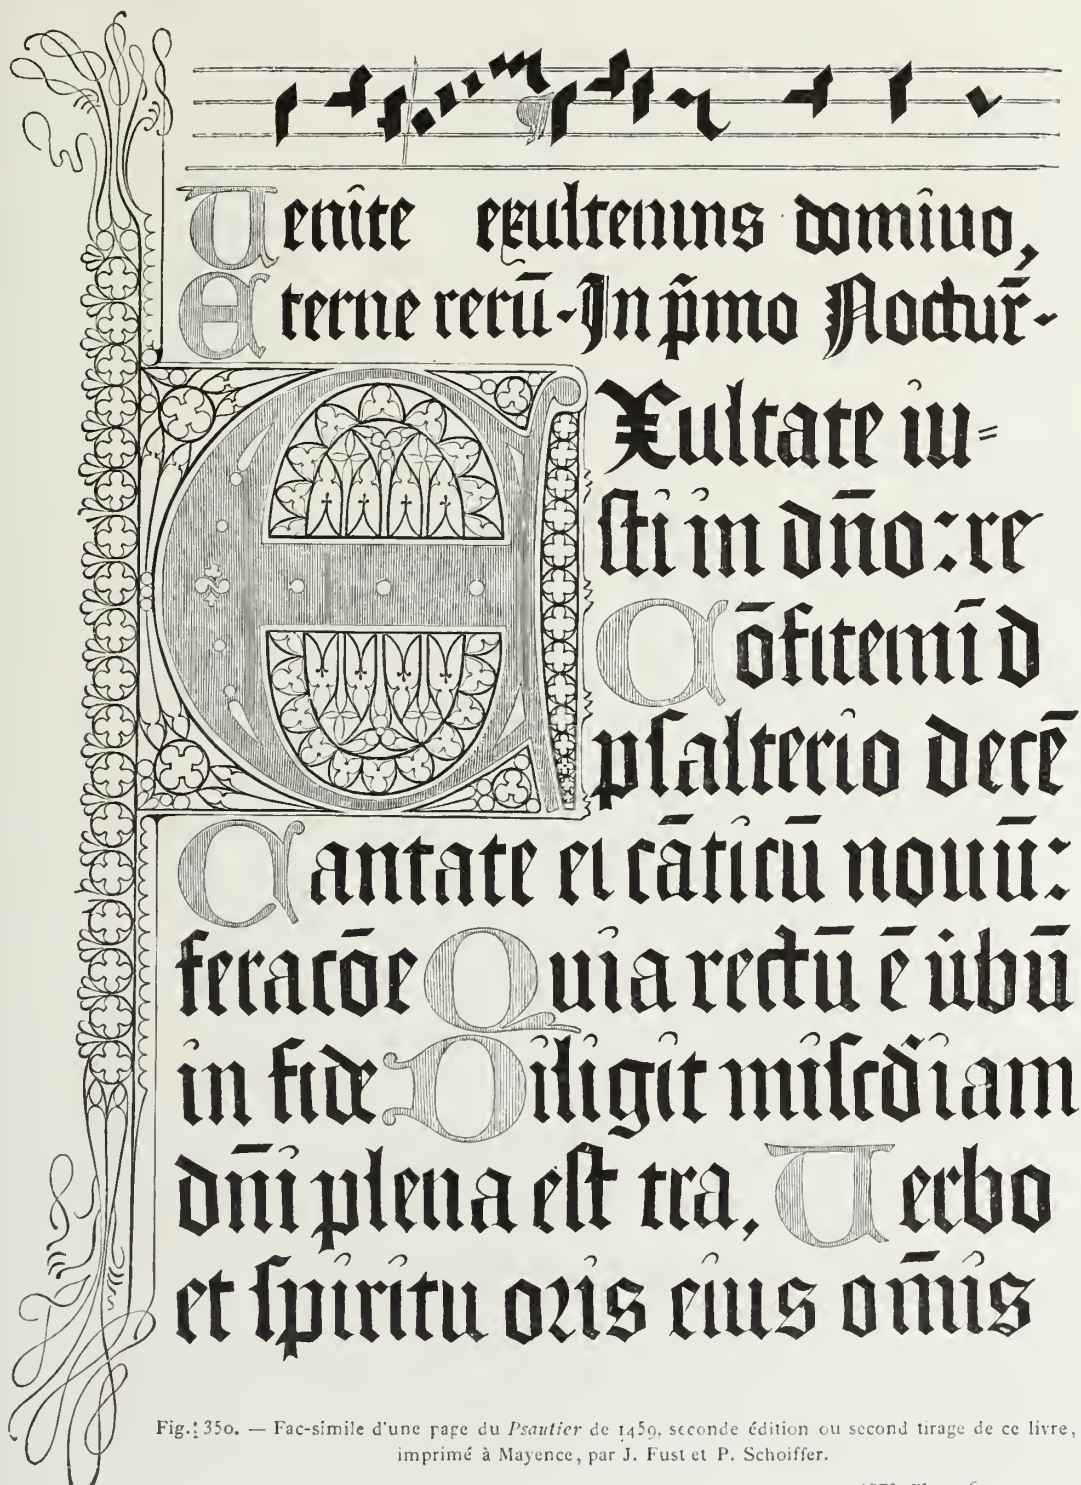 Uenite exultemus domino,
Eterne rerū-In p̄mo Nocturr̄-
EXultate iu=
sti in dn̄o: re
Cōfitemī d
psalterio decē
Cantate ei cāticū nouū:
feracōe Quia rectū ē ūbū
in fide Diligit misc̄diam
dn̄i plena est tra, Uerbo
et spiritu oris eius om̄is
Fig. 350. — Fac-simile d'une page du Psautier de 1459, seconde édition ou second tirage de ce livre,
imprimé à Mayence, par J. Fust et P. Schoiffer.